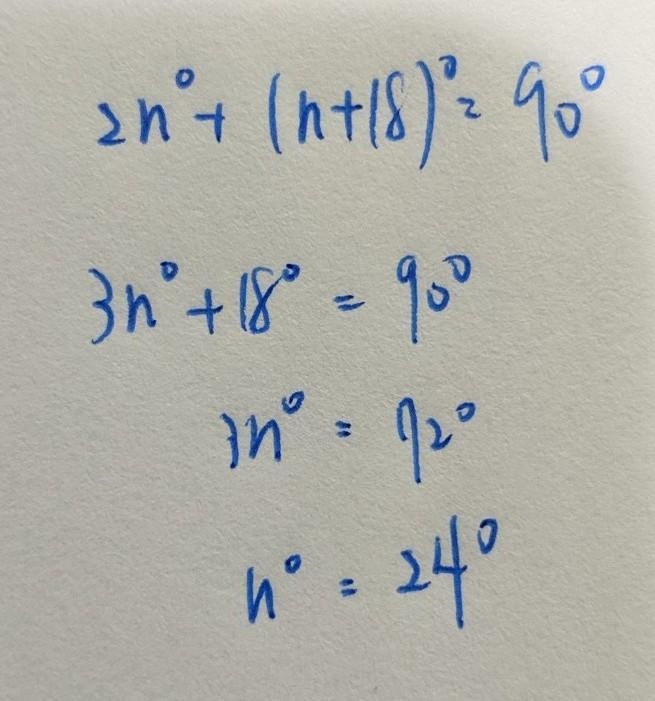 2n° + (n+18)° = 90°
3n° + 18° = 90°
3n° = 72°
n° = 24°